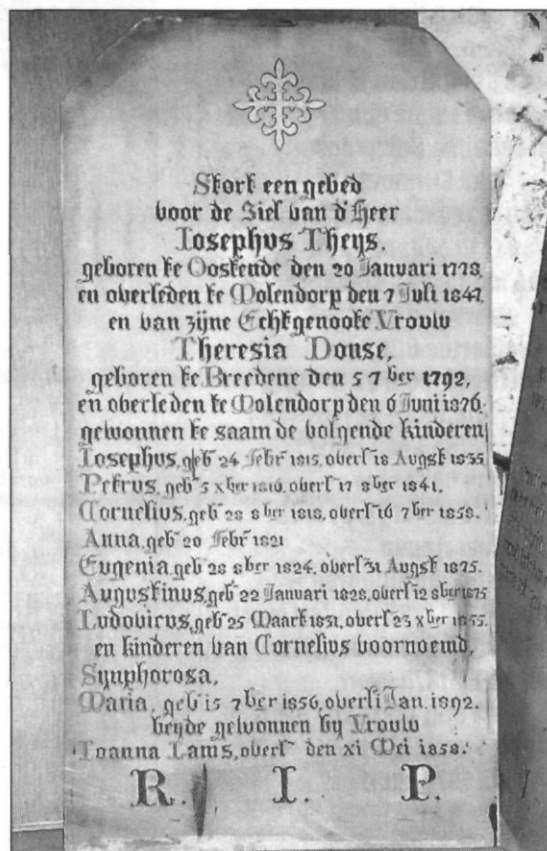 Stort een gebed
voor de Ziel van d'Heer
Iosephus Theys,
geboren te Oostende den 20 Januari 1778,
en overleden te Molendorp den 7 Juli 1847
en van zijne Echtgenoote Vrouw
Theresia Douse,
geboren te Breedene den 5 7ber 1792,
en overleden te Molendorp den 6 Juni 1876.
gewonnen te saam de volgende kinderen
Iosephus, gebn 24 febri 1815, overln 18 Augst 1835
Petrus, gebn 5 xber 1816, overln 17 8ber 1841.
Cornelius, gebn 28 8ber 1818, overln 16 7ber 1858.
Anna, gebn 20 febri 1821
Eugenia, gebn 28 8ber 1824, overln 31 Augst 1875.
Augustinus, gebn 22 Januari 1828, overln 12 8ber 1875
Ludovicus, gebn 25 Maart 1831, overln 23 xber
en kinderen van Cornelius voornoemd,
Symphorosa,
Maria, gebn 15 7ber 1856, overln 1 Jan. 1892.
beyde gewonnen by Vrouw
Ioanna Lams, overln den xi Mei 1858.
R. I. P.